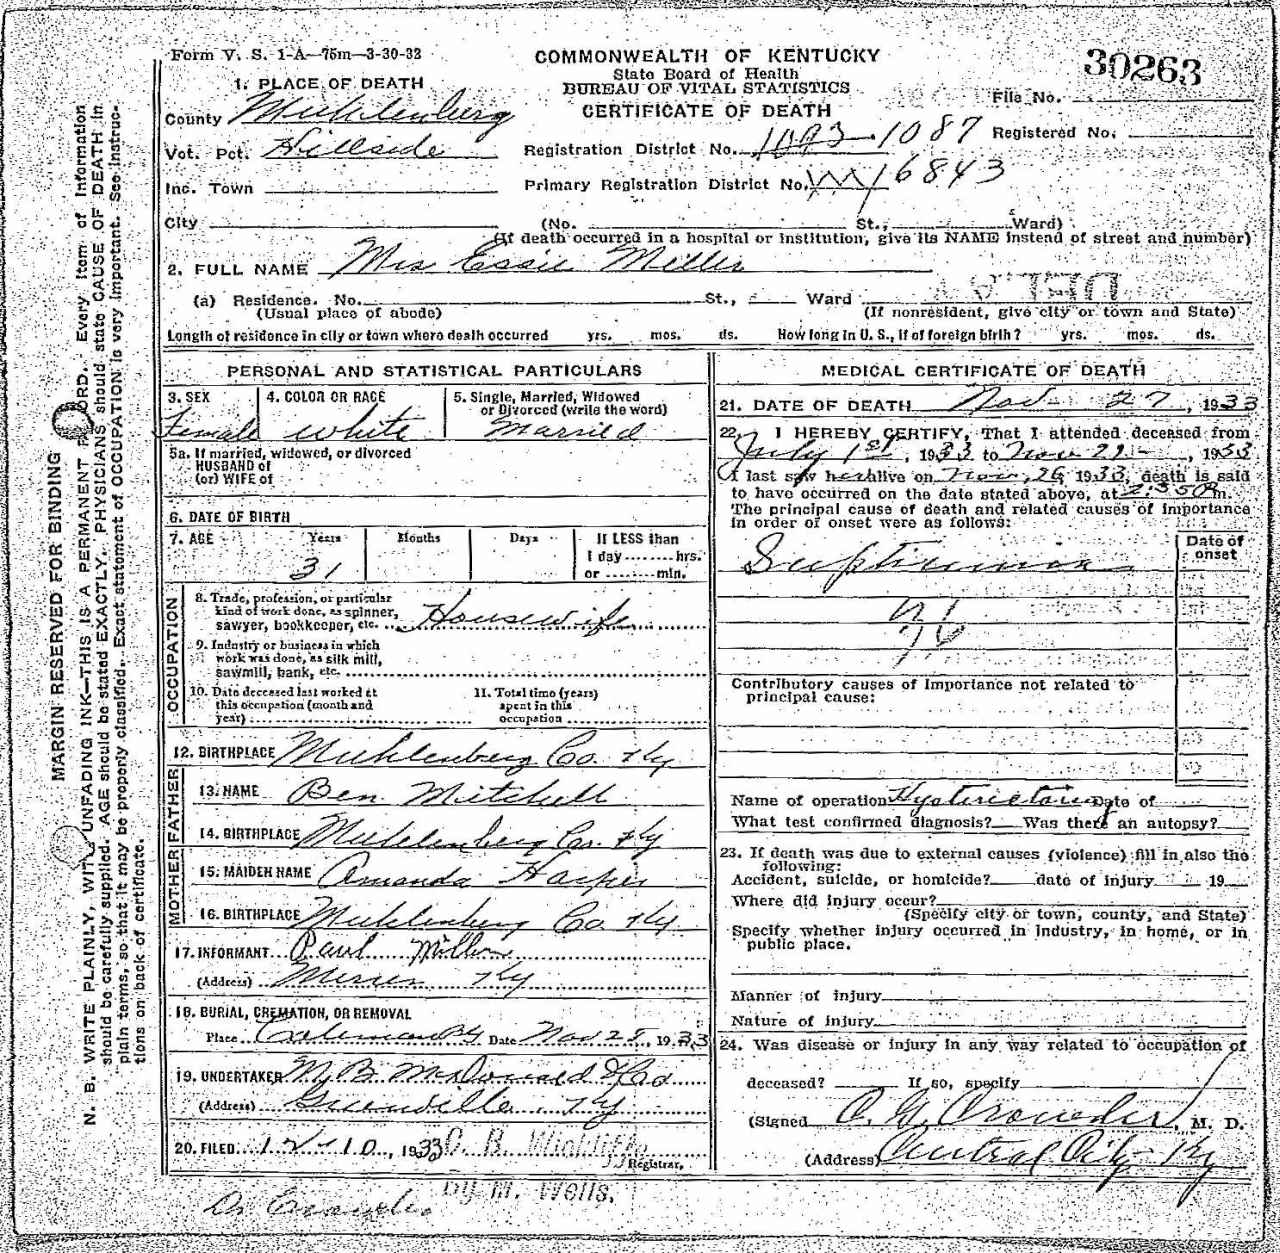 Form V. S. 1-A—75m—3-30-33
COMMONWEALTH OF KENTUCKY
State Board of Health
BUREAU OF VITAL STATISTICS
CERTIFICATE OF DEATH
30263
File No.
Registered No.
1. PLACE OF DEATH
County Muhlenberg
Vot. Pct. Hillside
Inc. Town
City
Registration District No. 1093 1087
Primary Registration District No. 6843
(No. St., Ward)
(If death occurred in a hospital or institution, give its NAME instead of street and number)
2. FULL NAME Mrs Essie Miller
(a) Residence. No. St., Ward
(Usual place of abode)
(If nonresident, give city or town and State)
Length of residence in city or town where death occurred yrs. mos. ds. How long in U. S., if of foreign birth? yrs. mos. ds.
PERSONAL AND STATISTICAL PARTICULARS
3. SEX Female
4. COLOR OR RACE White
5. Single, Married, Widowed
or Divorced (write the word)
Married
5a. If married, widowed, or divorced
HUSBAND of
(or) WIFE of
6. DATE OF BIRTH
7. AGE Years Months Days If LESS than
1 day ........ hrs.
or ....... min.
31
OCCUPATION
8. Trade, profession, or particular
kind of work done, as spinner,
sawyer, bookkeeper, etc. Housewife
9. Industry or business in which
work was done, as silk mill,
sawmill, bank, etc.
10. Date deceased last worked at
this occupation (month and
year)
11. Total time (years)
spent in this
occupation
12. BIRTHPLACE Muhlenberg Co. Ky
FATHER
13. NAME Ben Mitchell
14. BIRTHPLACE Muhlenberg Co. Ky
MOTHER
15. MAIDEN NAME Amanda Harper
16. BIRTHPLACE Muhlenberg Co. Ky
17. INFORMANT Paul Miller
(Address) Ky
18. BURIAL, CREMATION, OR REMOVAL
Place Date Nov 28, 1933
19. UNDERTAKER M. B. McDonald
(Address) Greenville Ky
20. FILED 12-10, 1933
Registrar.
by M. Wells.
MEDICAL CERTIFICATE OF DEATH
21. DATE OF DEATH Nov 27, 1933
22. I HEREBY CERTIFY, That I attended deceased from
July 1st, 1933 to Nov , 1933
I last saw her alive on Nov. 26 1933, death is said
to have occurred on the date stated above, at 2:35 m.
The principal cause of death and related causes of importance
in order of onset were as follows:
Date of
onset
Contributory causes of importance not related to
principal cause:
Name of operation Date of
What test confirmed diagnosis? Was there an autopsy?
23. If death was due to external causes (violence) fill in also the
following:
Accident, suicide, or homicide? date of injury 19
Where did injury occur?
(Specify city or town, county, and State)
Specify whether injury occurred in industry, in home, or in
public place.
Manner of injury
Nature of injury
24. Was disease or injury in any way related to occupation of
deceased? If so, specify
(Signed Crowder, M. D.
(Address) Central City Ky
MARGIN RESERVED FOR BINDING
N. B. WRITE PLAINLY, WITH UNFADING INK—THIS IS A PERMANENT RECORD. Every item of information
should be carefully supplied. AGE should be stated EXACTLY. PHYSICIANS should state CAUSE OF DEATH in
plain terms, so that it may be properly classified. Exact statement of OCCUPATION is very important. See instruc-
tions on back of certificate.